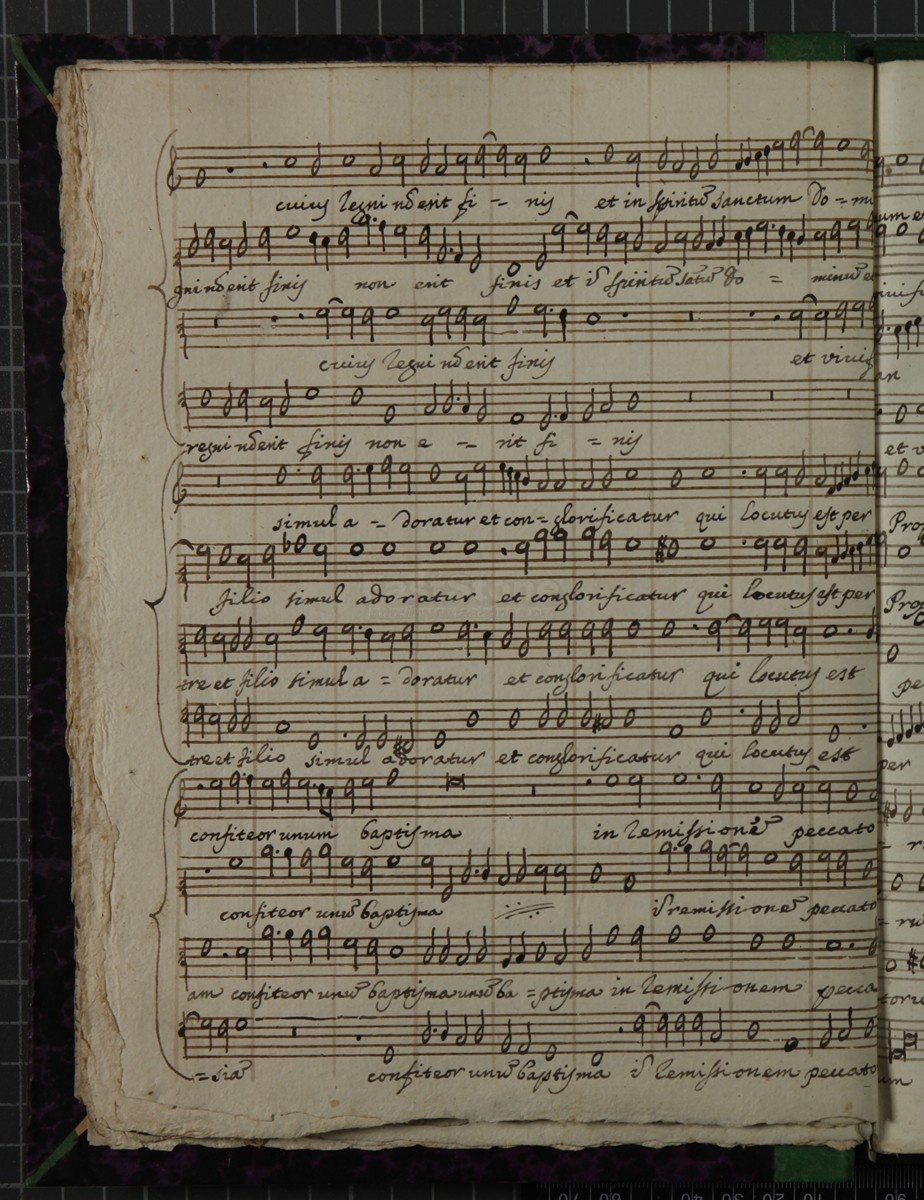 cuius Regni nō erit fi = nis et in spiritū sanctum Do = mi
gni nō erit finis non erit finis et ī spiritū sātū Do = minū et
cuius Regni nō erit finis et vivi
regni nō erit finis non e = rit fi = nis
simul a = doratur et con = glorificatur qui locutus est per
filio simul adoratur et conglorificatur qui locutus est per
tre et filio simul a = doratur et conglorificatur qui locutus est
tre et filio simul adoratur et conglorificatur qui locutus est
confiteor unum baptisma in Remissionē peccato
confiteor unū baptisma ī remissionē peccato
am confiteor unū baptisma unū ba = ptisma in Remissionem pecca
= siā confiteor unū baptisma ī Remissionem peccato
um et
et v
Prop
Prop
pe
per